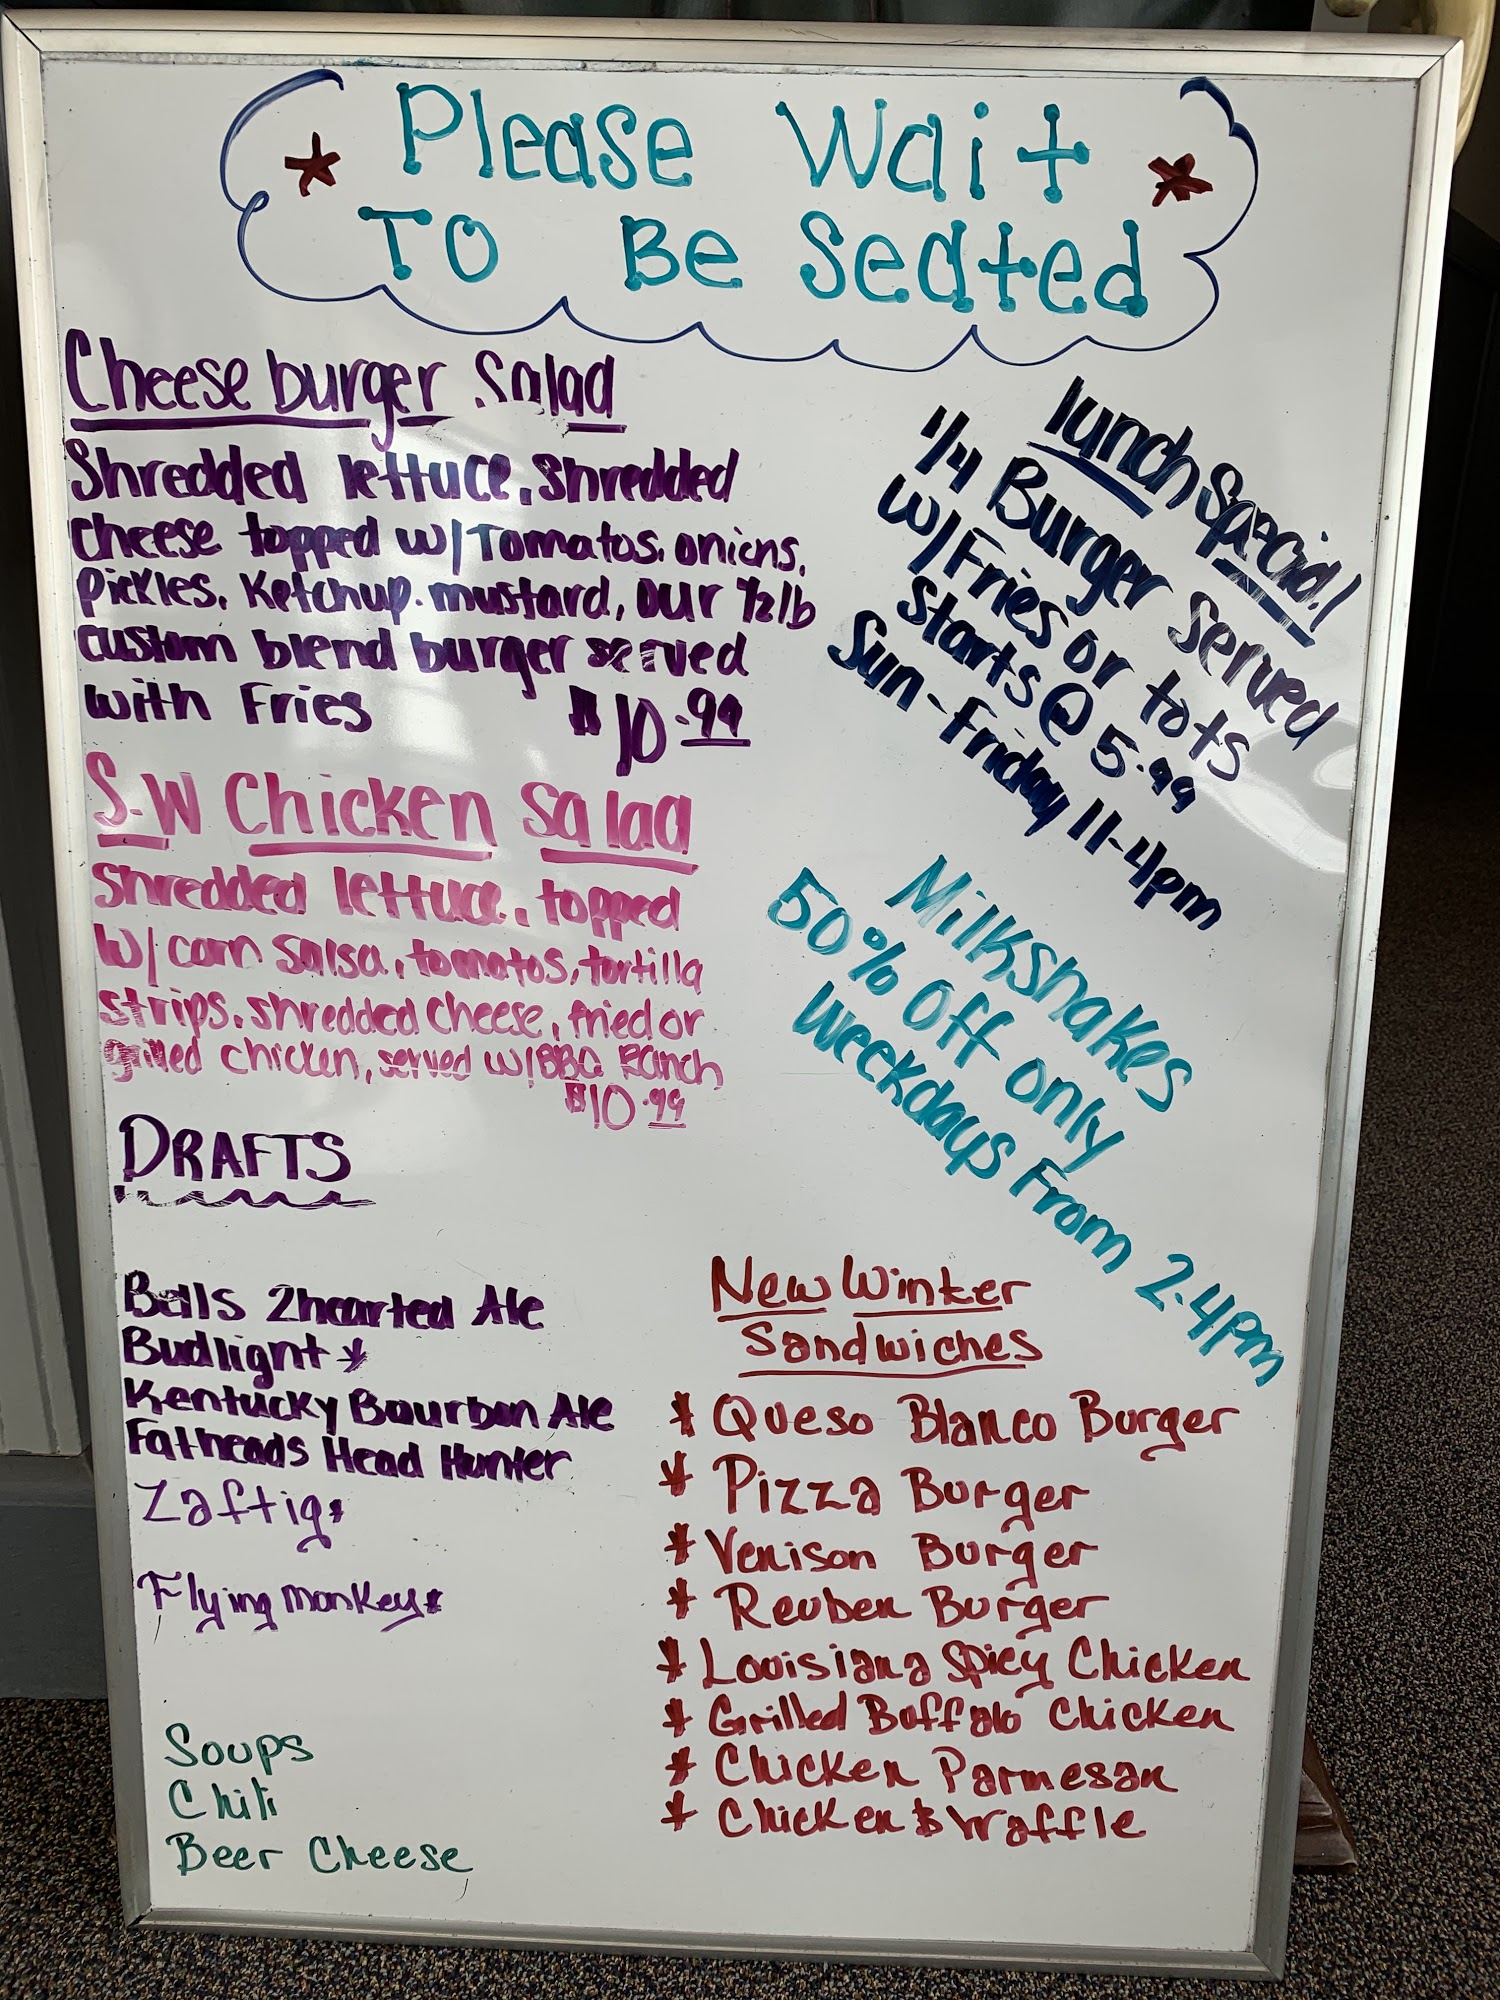 Please Wait
To Be Seated
Cheeseburger Salad
Shredded lettuce, shredded
cheese topped w/Tomatos, onions,
Pickles, Ketchup, mustard, our 1/2lb
custom blend burger served
with Fries $10.99
S.W Chicken Salad
Shredded lettuce, topped
w/ corn salsa, tomatos, tortilla
strips, shredded cheese, fried or
grilled chicken, served w/BBQ Ranch
$10.99
Lunch Special!
1/4 Burger served
w/Fries or tots
starts @ 5.99
Sun-Friday 11-4pm
Milkshakes
50% Off only
weekdays From 2-4pm
DRAFTS
Bells 2hearted Ale
Budlight *
Kentucky Bourbon Ale
Fatheads Head Hunter
Zaftig*
Flying Monkey*
Soups
Chili
Beer Cheese
New Winter
Sandwiches
* Queso Blanco Burger
* Pizza Burger
* Venison Burger
* Reuben Burger
* Louisiana Spicy Chicken
* Grilled Buffalo Chicken
* Chicken Parmesan
* Chicken & Waffle